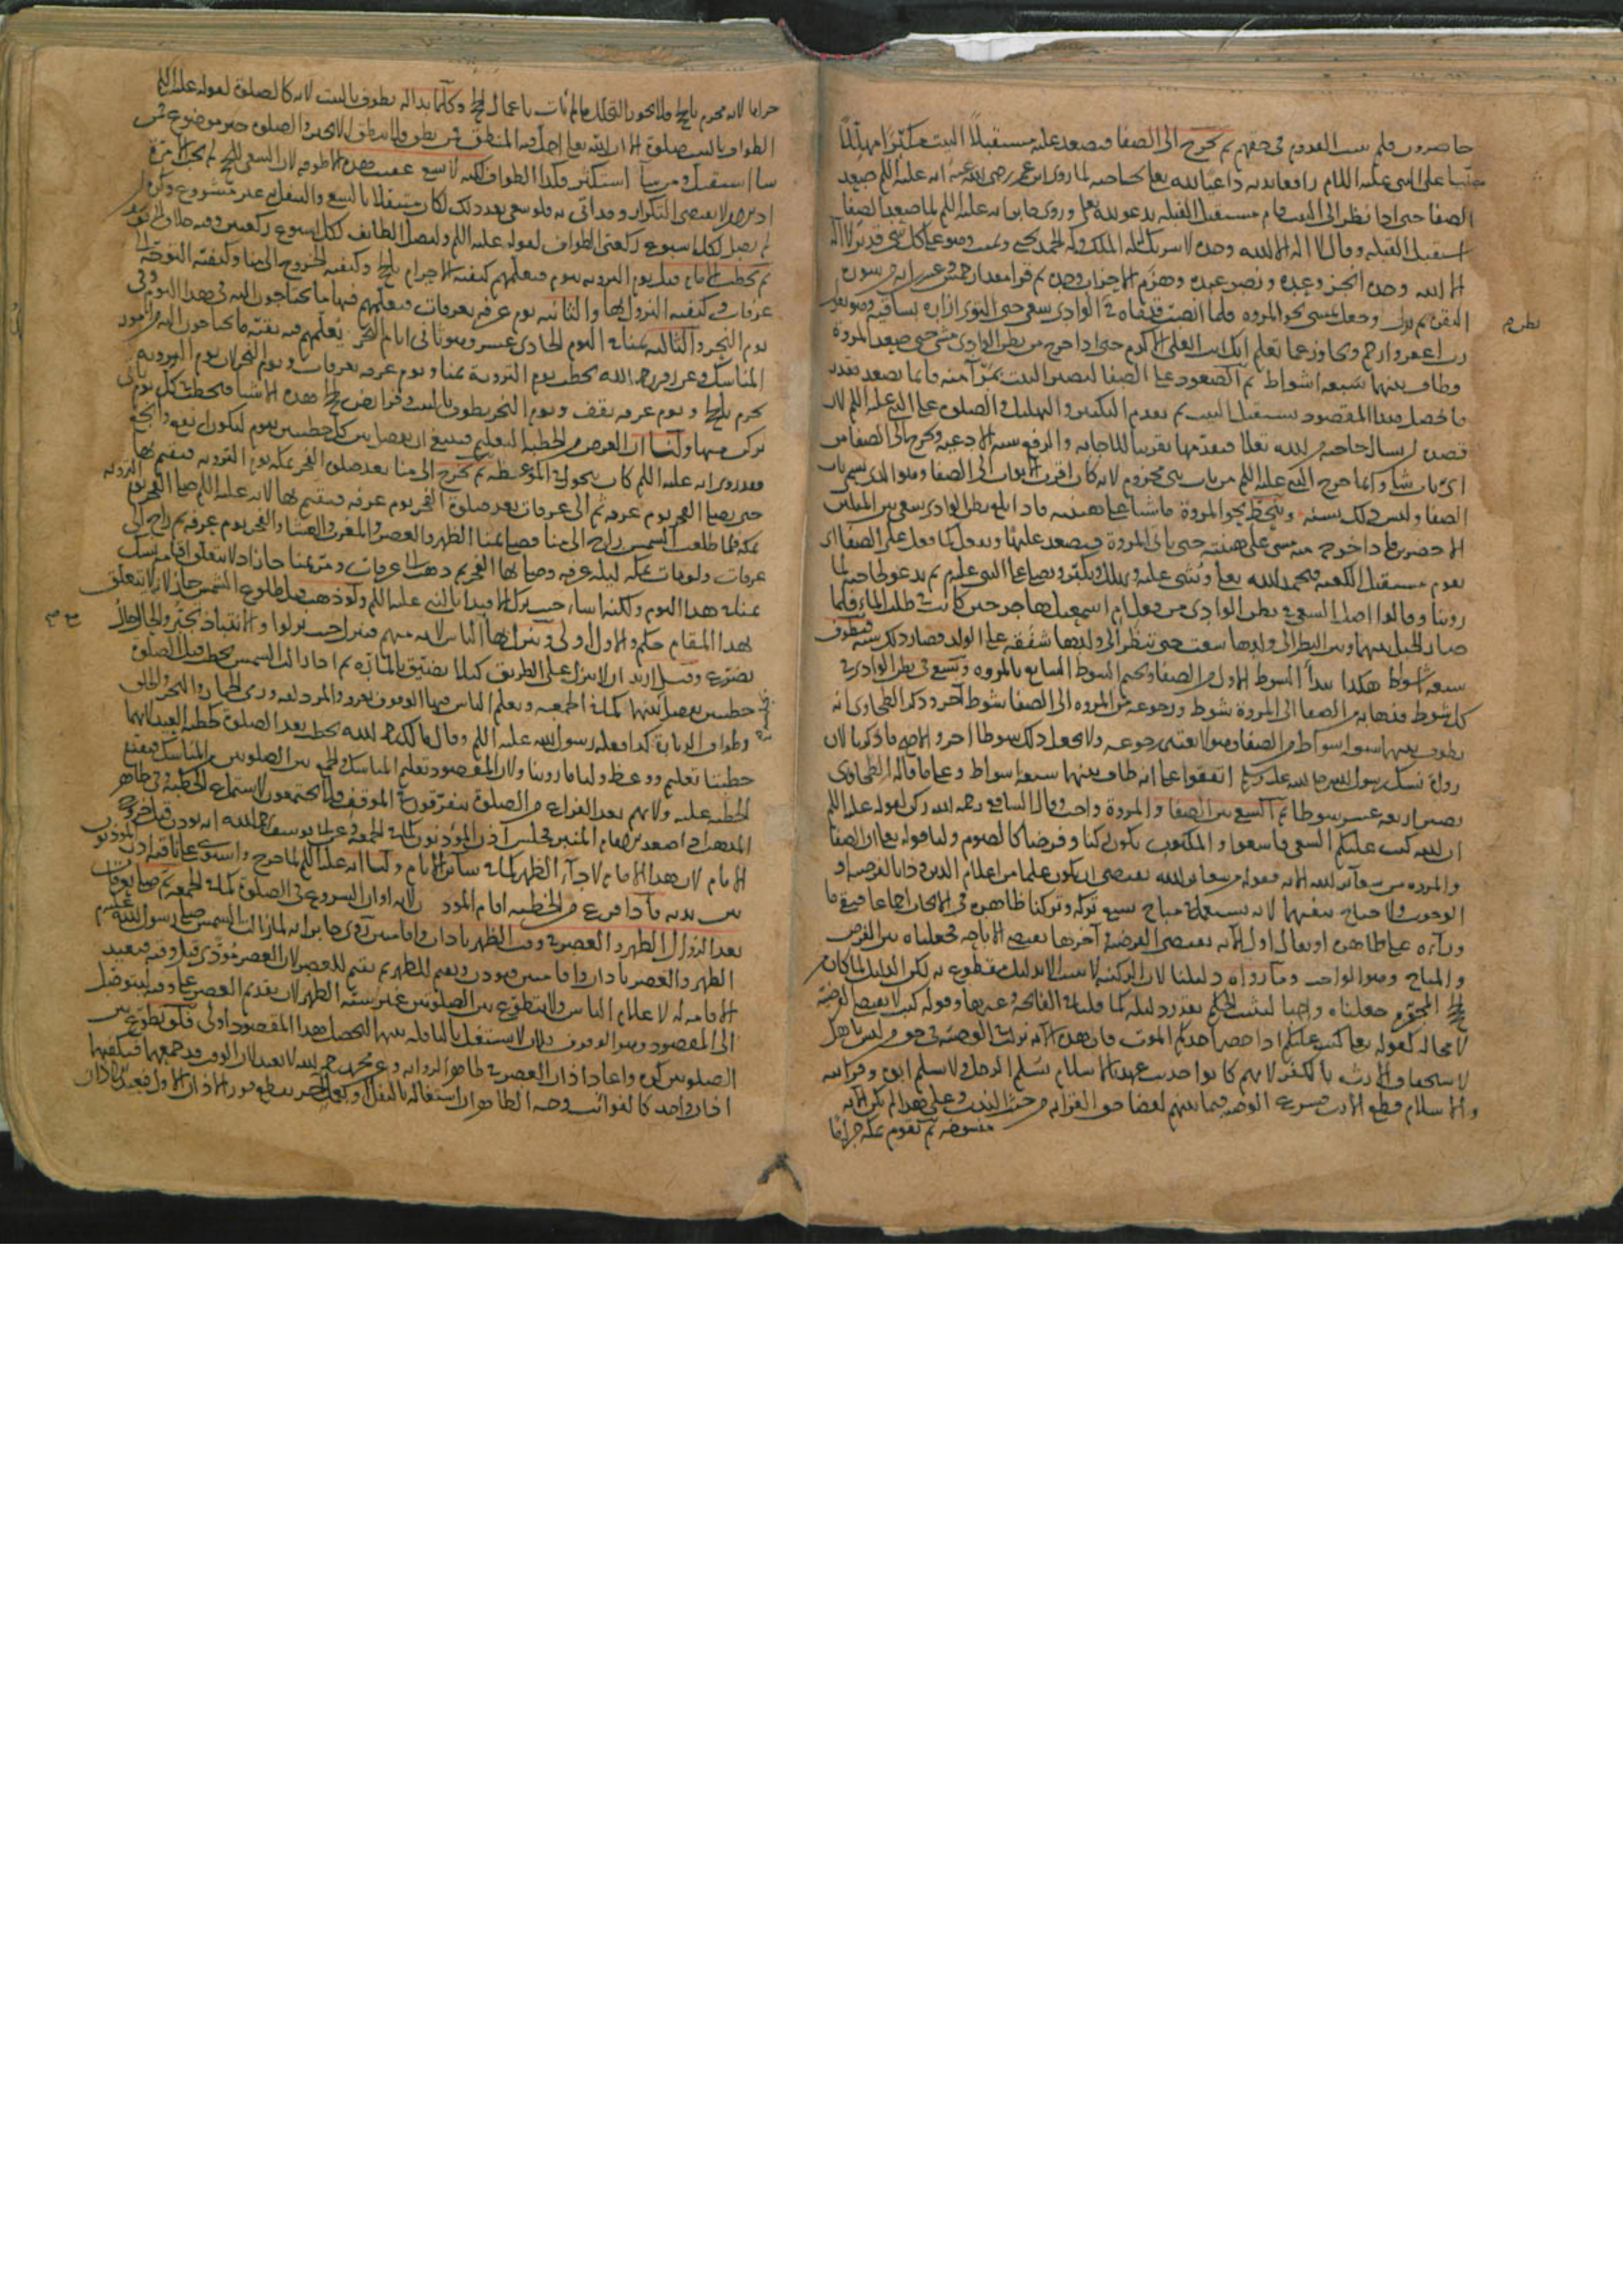 حاضرون فلم يسن القدوم في حقهم ثم يخرج الى الصفا فيصعد عليه مستقبلا البيت مكبرا مهللا
مصليا على النبي عليه السلام رافعا يديه داعيا لله تعالى بحاجته لما روى ابن عمر رضي الله عنه انه عليه السلام صعد
الصفا حتى اذا نظر الى البيت قام مستقبل القبلة يدعو لله تعالى وروى جابر انه عليه السلام لما صعد الصفا
استقبل القبلة وقال لا اله الا الله وحده لا شريك له له الملك وله الحمد يحيي ويميت وهو على كل شي قدير لا اله
الا الله وحده انجز وعده ونصر عبده وهزم الاحزاب وحده ثم قرا مقدار خمس وعشرين اية من سورة
البقرة ثم نزل وجعل يمشي نحو المروة فلما انصبت قدماه في الوادي سعى حتى التوى ازاره بساقيه وهو يقول
رب اغفر وارحم وتجاوز عما تعلم انك انت العلي الاكرم حتى اذا خرج من بطن الوادي مشى حتى صعد المروة
وطاف بينهما سبعة اشواط ثم الصعود على الصفا ليصير البيت بمرأى منه فانما يصعد بقدر
ما يحصل هذا المقصود يستقبل البيت ثم يقدم التكبير والتهليل والصلوة على النبي عليه السلام لان
قصده ان يسال حاجته من الله تعالى فيقدمها تقريبا للاجابة والرفع سنة الادعية ويخرج الى الصفا من
اي باب شا وانما خرج النبي عليه السلام من باب بني مخزوم لانه كان اقرب الابواب الى الصفا وهو الذي يسمى باب
الصفا وليس ذلك بسنة وينحط نحو المروة ماشيا على هينته فاذا بلغ بطن الوادي سعى بين الميلين
الاخضرين فاذا خرج منه مشى على هينته حتى ياتي المروة فيصعد عليها ويفعل كما فعل على الصفا اي
يقوم مستقبل الكعبة فيحمد الله تعالى ويثني عليه ويهلل ويكبر ويصلي على النبي عليه السلام ثم يدعو لحاجته لما
روينا وقالوا اصل السعي في بطن الوادي من فعل ام اسمعيل هاجر حين كانت في طلب الماء فلما
صار الجبل بينها وبين النظر الى ولدها سعت حتى تنظر الى ولدها شفقة على الولد فصار ذلك سنة فيطوف
سبعة اشواط هكذا يبدا الشوط الاول من الصفا ويختم الشوط السابع بالمروة ويسعى في بطن الوادي في
كل شوط فذهابه من الصفا الى المروة شوط ورجوعه من المروة الى الصفا شوط آخر وذكر الطحاوي انه
يطوف بينهما سبعة اشواط من الصفا وهو لا يعتبر رجوعه ولا يجعل ذلك شوطا اخر والاصح ما ذكرنا لان
رواة نسك رسول الله صلى الله عليه وسلم اتفقوا على انه طاف بينهما سبعة اشواط وعلى ما قاله الطحاوي
يصير اربعة عشر شوطا ثم السعي بين الصفا والمروة واجب وقال الشافعي رحمه الله ركن لقوله عليه السلام
ان الله كتب عليكم السعي فاسعوا والمكتوب يكون ركنا وفرضا كالصوم ولنا قوله تعالى ان الصفا
والمروة من شعائر الله الاية فقوله من شعائر الله يقتضي ان يكون علما من اعلام الدين وذا بالفرضية او
الوجوب ولا جناح ينفيهما لانه يستعمل في مباح يسع تركه وتركنا ظاهره في الايجاب اجماعا فبقي ما
وراءه على ظاهره او يقال اول الاية يقتضي الفرضية وآخرها يقتضي الاباحة فجعلناه بين الفرض
والمباح وهو الواجب وما رواه دليلنا لان الركنية لا تثبت الا بدليل مقطوع به لكن الدليل لما كان من
لا محالة كقوله تعالى كتب عليكم اذا حضر احدكم الموت فان هذه الاية نزلت في الوصية في حق من ليس باهل
لاستحقاق الارث بالكفر لانهم كانوا حديث عهد بالاسلام يسلم الرجل ولا يسلم ابوه وقرابته
والاسلام قطع الارث فيشرع الوصية فيما بينهم لقضا حق القرابة من حيث الندب وعلى هذا لم تكن الاية
منسوخة ثم يقوم بمكة حراما
بطن م
حراما لانه محرم بالحج فلا يجوز التحلل ما لم يات باعمال الحج وكلما بدا له يطوف بالبيت لانه كالصلوة لقوله عليه السلام
الطواف بالبيت صلوة الا ان الله تعالى احل فيه المنطق فمن نطق فلا ينطق الا بخير والصلوة خير موضوع فمن
شا استقل ومن شا استكثر فكذا الطواف لكنه لا يسعى عقيب هذه الاطوفة لان السعي للحج لم يجب الا مرة
لم يصل لكل اسبوع ركعتي الطواف لقوله عليه السلام وليصل الطائف لكل اسبوع ركعتين
ثم يخطب الامام قبل يوم التروية بيوم فيعلمهم كيفية الاحرام بالحج وكيفية الخروج الى منا وكيفية التوجه الى
عرفات وكيفية النزول بها والثانية يوم عرفة بعرفات فيعلمهم فيها ما يحتاجون اليه في هذا اليوم وفي
يوم النحر والثالثة بمنا في اليوم الحادي عشر وهو ثاني ايام النحر يعلمهم فيه بقية ما يحتاجون اليه من امور
المناسك وعن زفر رحمه الله يخطب يوم التروية بمنا ويوم عرفة بعرفات ويوم النحر لان يوم التروية
يحرم بالحج ويوم عرفة يقف ويوم النحر يطوف بالبيت وفرايض الحج هذه الاشيا فيخطب كل يوم
ولنا ان الغرض من الخطبة التعليم فينبغي ان يفصل بين كل خطبتين بيوم ليكون انفع وانجع
فقد روي انه عليه السلام كان يتحول في الموعظة ثم يخرج الى منا بعد صلوة الفجر بمكة يوم التروية فيقيم بها
حتى يصلي الفجر يوم عرفة ثم الى عرفات بعد صلوة الفجر يوم عرفة فيقيم بها لانه عليه السلام صلى الفجر يوم التروية
بمكة فلما طلعت الشمس راح الى منا فصلى بمنا الظهر والعصر والمغرب والعشا والفجر يوم عرفة ثم راح الى
عرفات ولو بات بمكة ليلة عرفة وصلى بها الفجر ثم ذهب الى عرفات ومر بمنا جاز اذ لا يتعلق اقامة نسك
بمنا في هذا اليوم ولكنه اسا حيث ترك الاقتدا بالنبي عليه السلام ولو ذهب قبل طلوع الشمس جاز لانه لا يتعلق
بهذا المقام حكم والاول اولى وينزل بها مع الناس لانه منهم فينزل حيث نزلوا والانتباذ تجبر والحال حال
تضرع وقيل اريد ان لا ينزل على الطريق كيلا يضيق بالمارة ثم اذا زالت الشمس يخطب قبل الصلوة
خطبتين يفصل بينهما كما في الجمعة ويعلم الناس فيها الوقوف بعرفة والمزدلفة ورمي الجمار والنحر والحلق
وطواف الزيارة كذا فعله رسول الله عليه السلام وقال مالك رحمه الله يخطب بعد الصلوة كخطبة العيد لانها
خطبتا تعليم ووعظ ولنا ما روينا ولان المقصود تعليم المناسك والجمع بين الصلوتين من المناسك فيقع
الخطبة عليه ولانهم بعد الفراغ من الصلوة يتفرقون في الموقف ولا يجتمعون لاستماع الخطبة وفي ظاهر
المذهب اذا صعد الامام المنبر فجلس اذن المؤذنون كما في الجمعة وعن ابي يوسف رحمه الله انه يؤذن قبل خروج
الامام لان هذا الاذان لاجل الظهر كما في سائر الايام ولنا انه عليه السلام لما خرج واستوى على ناقته اذن المؤذنون
بين يديه فاذا فرغ من الخطبة اقام المؤذن لانه اوان الشروع في الصلوة كما في الجمعة ثم صلى بعرفات
بعد الزوال الظهر والعصر في وقت الظهر باذان واقامتين روى جابر انه لما زالت الشمس صلى رسول الله عليه السلام
الظهر والعصر باذان واقامتين فيؤذن ويقيم للظهر ثم يقيم للعصر لان العصر مؤدى قبل وقته فيعيد
الاقامة له لاعلام الناس ولا يتطوع بين الصلوتين غير سنة الظهر لان تقديم العصر على وقته ليتوصل
الى المقصود وهو الوقوف فلان لا يشتغل بالنافلة بينهما ليحصل هذا المقصود اولى فلو تطوع بين
الصلوتين كره واعاد اذان العصر في ظاهر الرواية وعن محمد رحمه الله لا يعيد لان الوقت قد جمعهما فيكفيهما
اذان واحد كالفوائت وجه الظاهر ان اشتغاله بالنفل او بعمل آخر يقطع فور الاذان الاول فيعيد الاذان